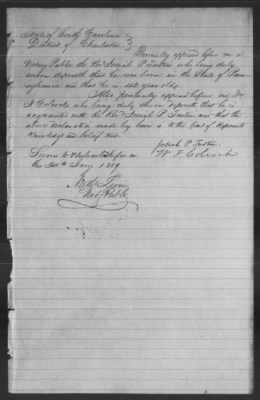 State of South Carolina
District of Charleston
Personally appeared before me a
Notary Public the Revd Joseph P. who being duly
sworn deposeth that he was born in the State of Penn
sylvania and that he is years old.
Also personally appeared before me Wm
F. who being duly sworn deposeth that he is
acquainted with the Revd Joseph P. and that the
above declaration made by him is to the best of deponents
knowledge and belief true.
Joseph P.
Sworn to & before me
this Jany 1859
W. F.
Not. Pub.